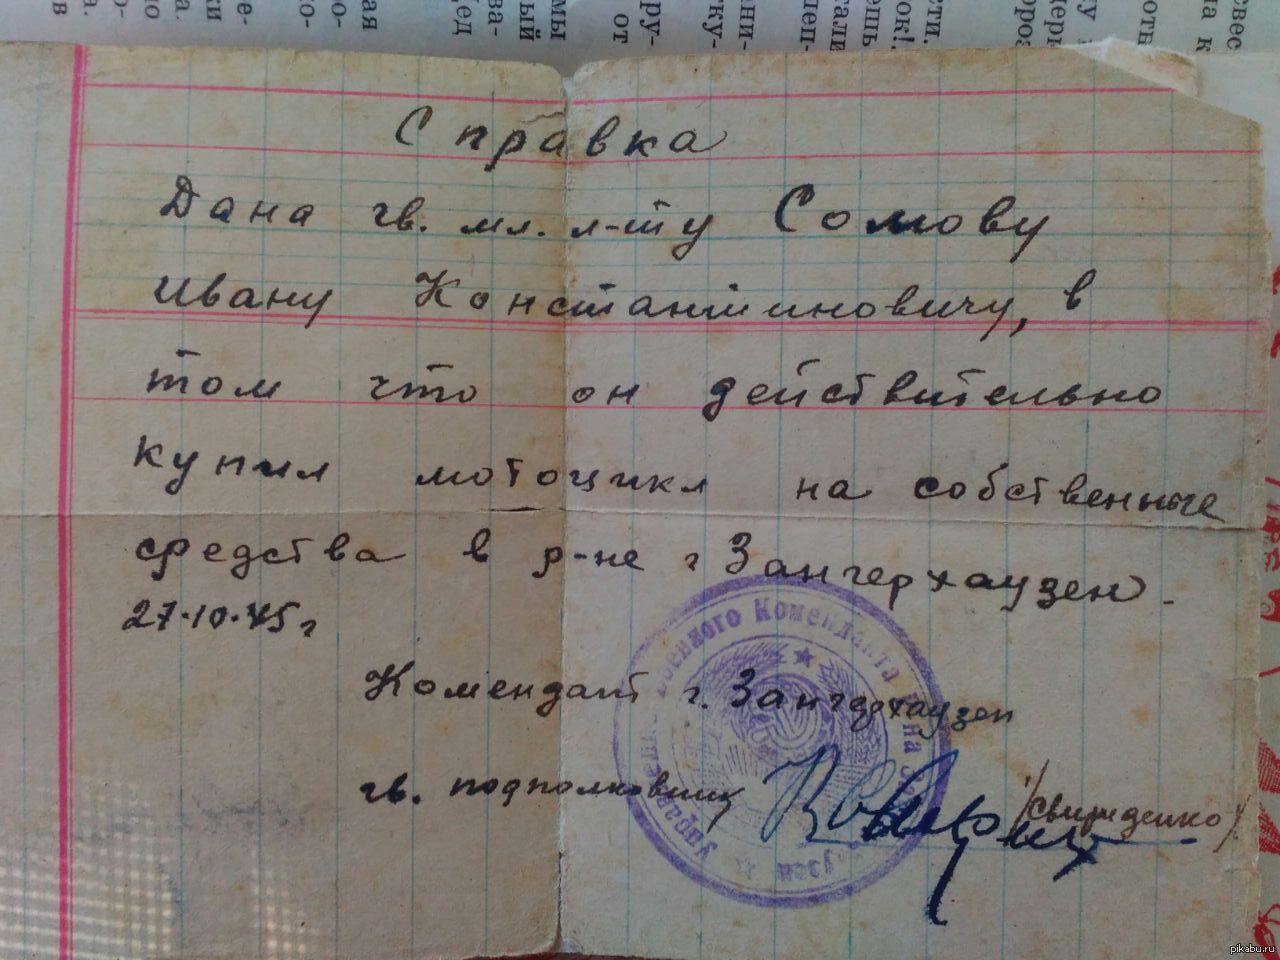 Справка
Дана гв. мл. л-ту Сомову
Ивану Константиновичу, в
том что он действительно
купил мотоцикл на собственные
средства в р-не г Зангерхаузен.
27.10.45 г
Комендант г. Зангерхаузен
гв. подполковник
/Свириденко/
Военного Коменданта
pikabu.ru